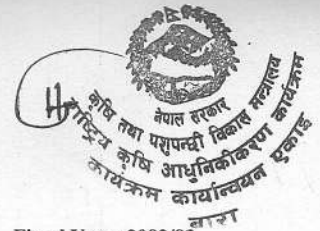 नेपाल सरकार
कृषि तथा पशुपन्छी विकास मन्त्रालय
राष्ट्रिय कृषि आधुनिकीकरण कार्यक्रम
कार्यक्रम कार्यान्वयन एकाइ
बारा